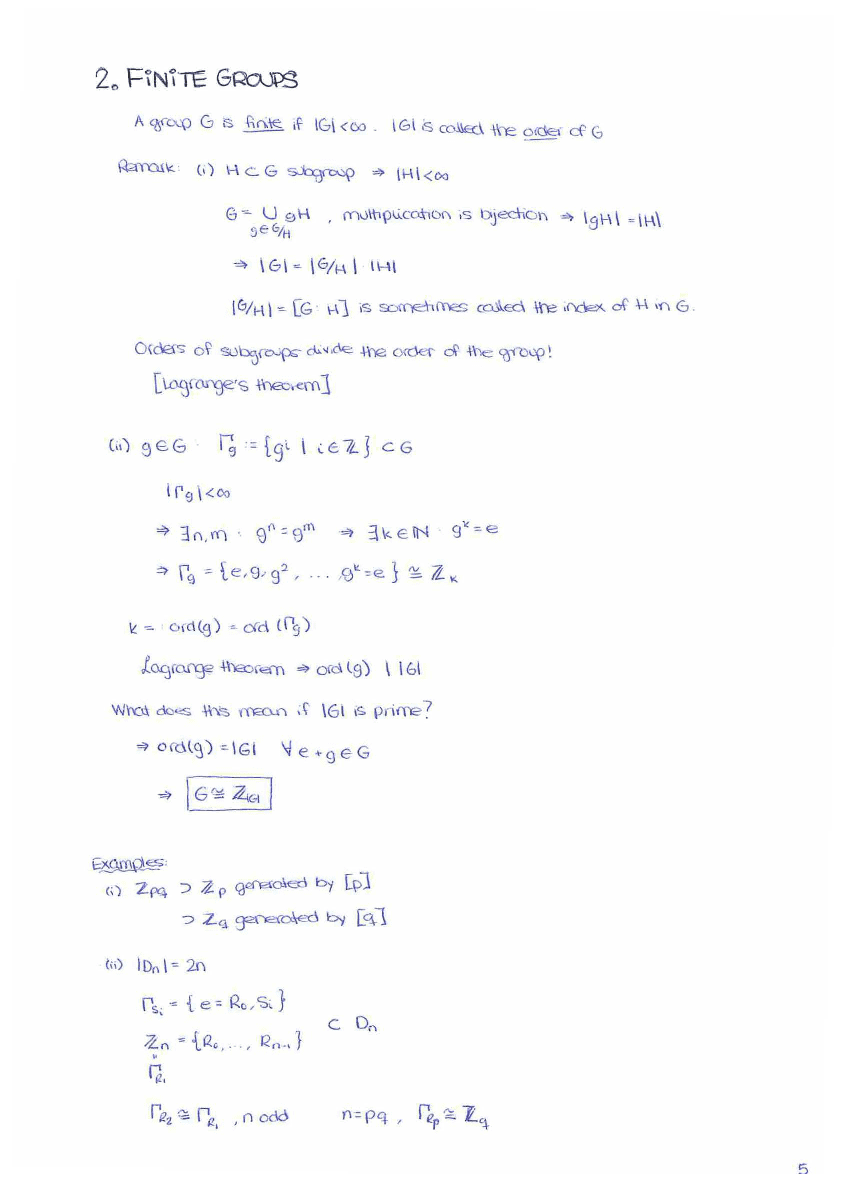 2. FINITE GROUPS
A group G is finite if |G|<∞. |G| is called the order of G
Remark: (i) H ⊂ G subgroup ⇒ |H|<∞
G = ∪ gH , multiplication is bijection ⇒ |gH| = |H|
g∈G/H
⇒ |G| = |G/H| · |H|
|G/H| = [G : H] is sometimes called the index of H in G.
Orders of subgroups divide the order of the group!
[Lagrange's theorem]
(ii) g∈G : Γg := {gⁱ | i∈ℤ} ⊂ G
|Γg|<∞
⇒ ∃n,m : gⁿ = gᵐ ⇒ ∃k∈ℕ : gᵏ = e
⇒ Γg = {e, g, g², ... gᵏ = e} ≅ ℤₖ
k =: ord(g) = ord(Γg)
Lagrange theorem ⇒ ord(g) | |G|
What does this mean if |G| is prime?
⇒ ord(g) = |G| ∀ e ≠ g ∈ G
⇒ G ≅ ℤ|G|
Examples:
(i) ℤpq ⊃ ℤp generated by [p]
⊃ ℤq generated by [q]
(ii) |Dn| = 2n
ΓSi = {e = R₀, Si}
ℤn = {R₀, ..., Rn-1} ⊂ Dn
ΓR₁
ΓR₂ ≅ ΓR₁ , n odd n=pq , ΓRp ≅ ℤq
5